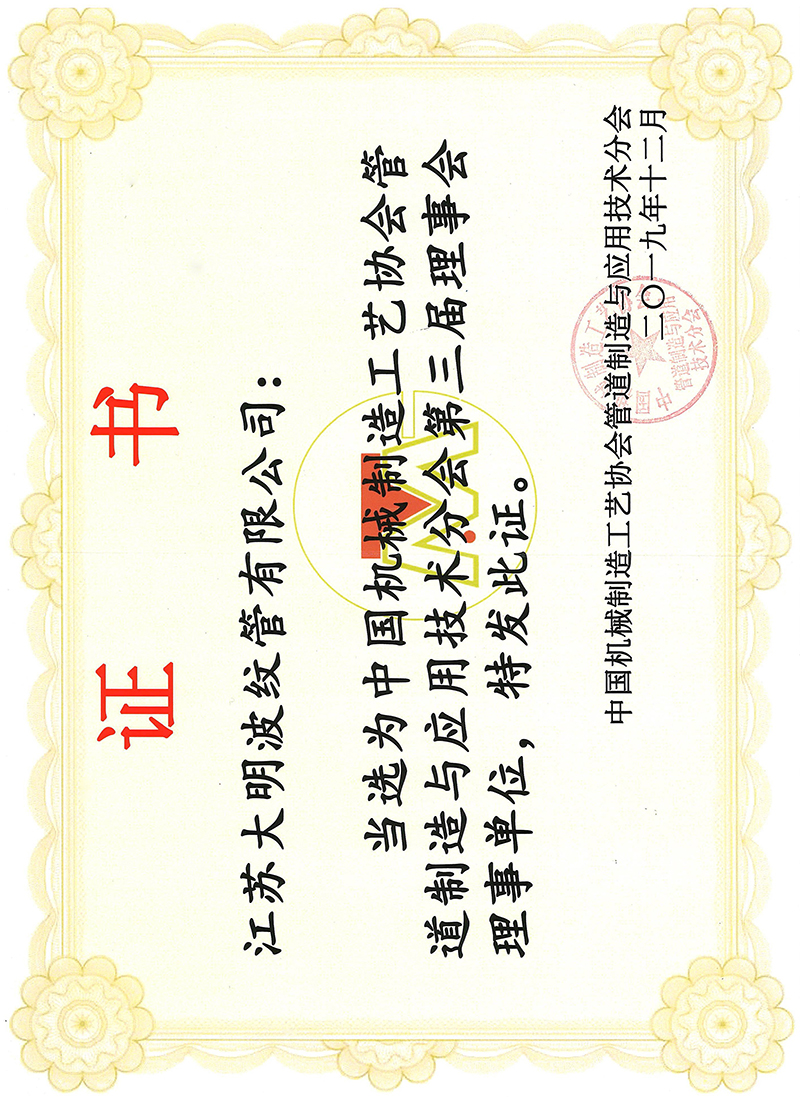 证 书
江苏大明波纹管有限公司：
当选为中国机械制造工艺协会管
道制造与应用技术分会第三届理事会
理事单位，特发此证。
中国机械制造工艺协会管道制造与应用技术分会
二〇一九年十二月
管道制造与应用
技术分会